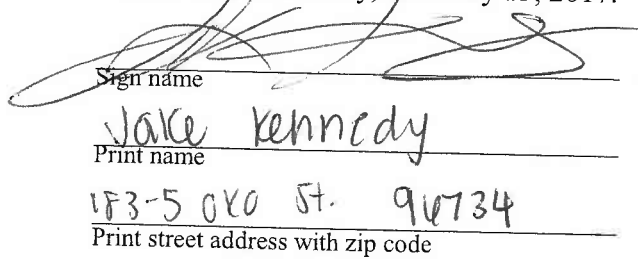 2017.
Sign name
Jake Kennedy
Print name
183-5 OKO St. 96734
Print street address with zip code